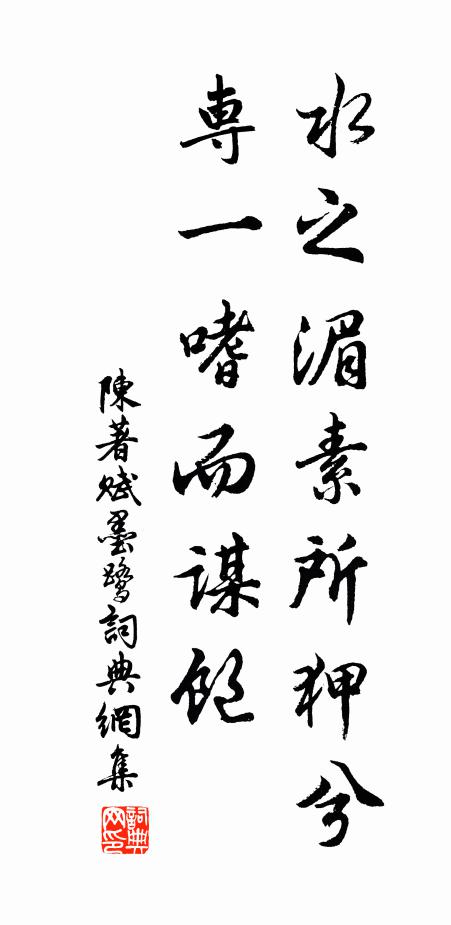 水之湄素所狎兮
專一嗜而謀飽
陳著賦墨鷺詞典網集
詞典网印